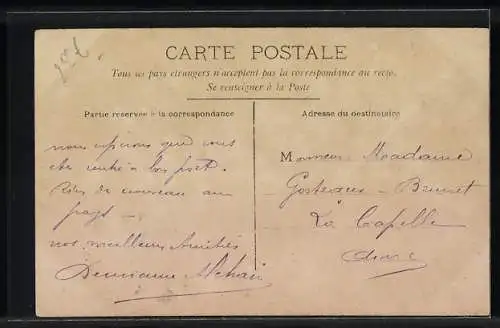 CARTE POSTALE
Tous les pays étrangers n'acceptent pas la correspondance au recto.
Se renseigner à la Poste
Partie réservée à la correspondance
Adresse du destinataire
nous espérons que vous
ete rentré à bon port.
Rien de nouveau au
pays —
nos meilleurs Amitiés
Monsieur Madame
La Capelle